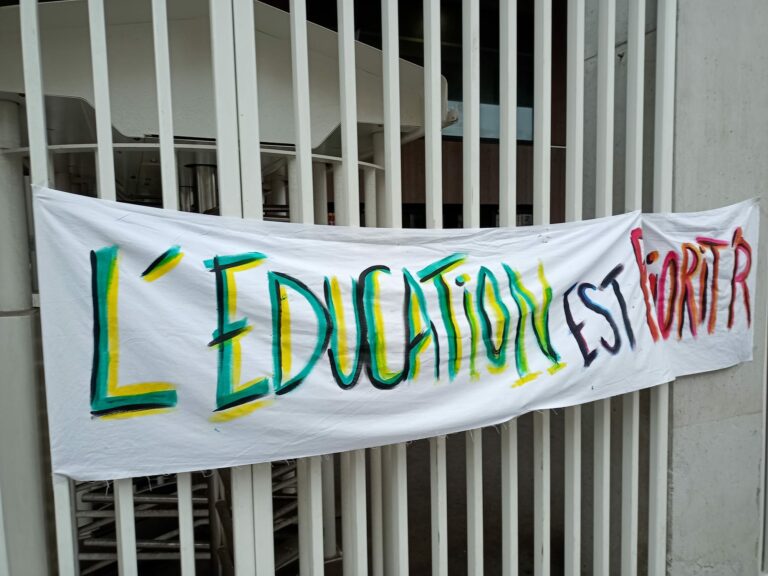 L'ÉDUCATION EST PRIORIT'R